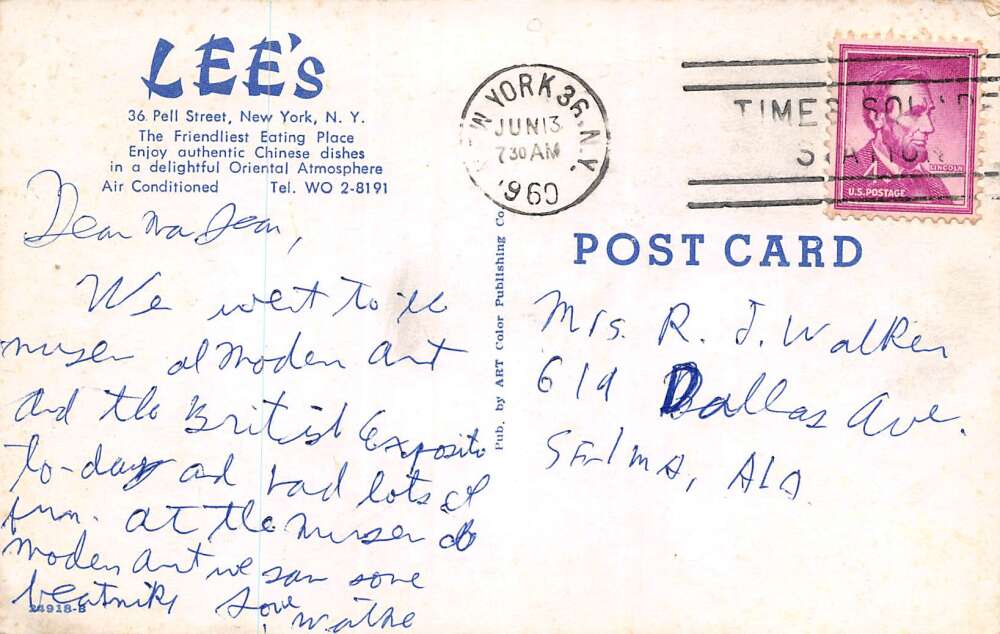 LEE's
36 Pell Street, New York, N. Y.
The Friendliest Eating Place
Enjoy authentic Chinese dishes
in a delightful Oriental Atmosphere
Air Conditioned Tel. WO 2-8191
NEW YORK 36, N.Y.
JUN 13
730 AM
1960
TIMES SQUARE
STATION
LINCOLN
U.S. POSTAGE
POST CARD
Pub. by ART Color Publishing Co.
Dear Ma Dear,
We went to
museu of moden art
and the British Exposito
to-day and had lots of
fun. at the museu of
moden art we saw some
beatniks Love,
24918-B
Mrs. R. J. Walker
619 Dallas Ave.
Selma, Ala